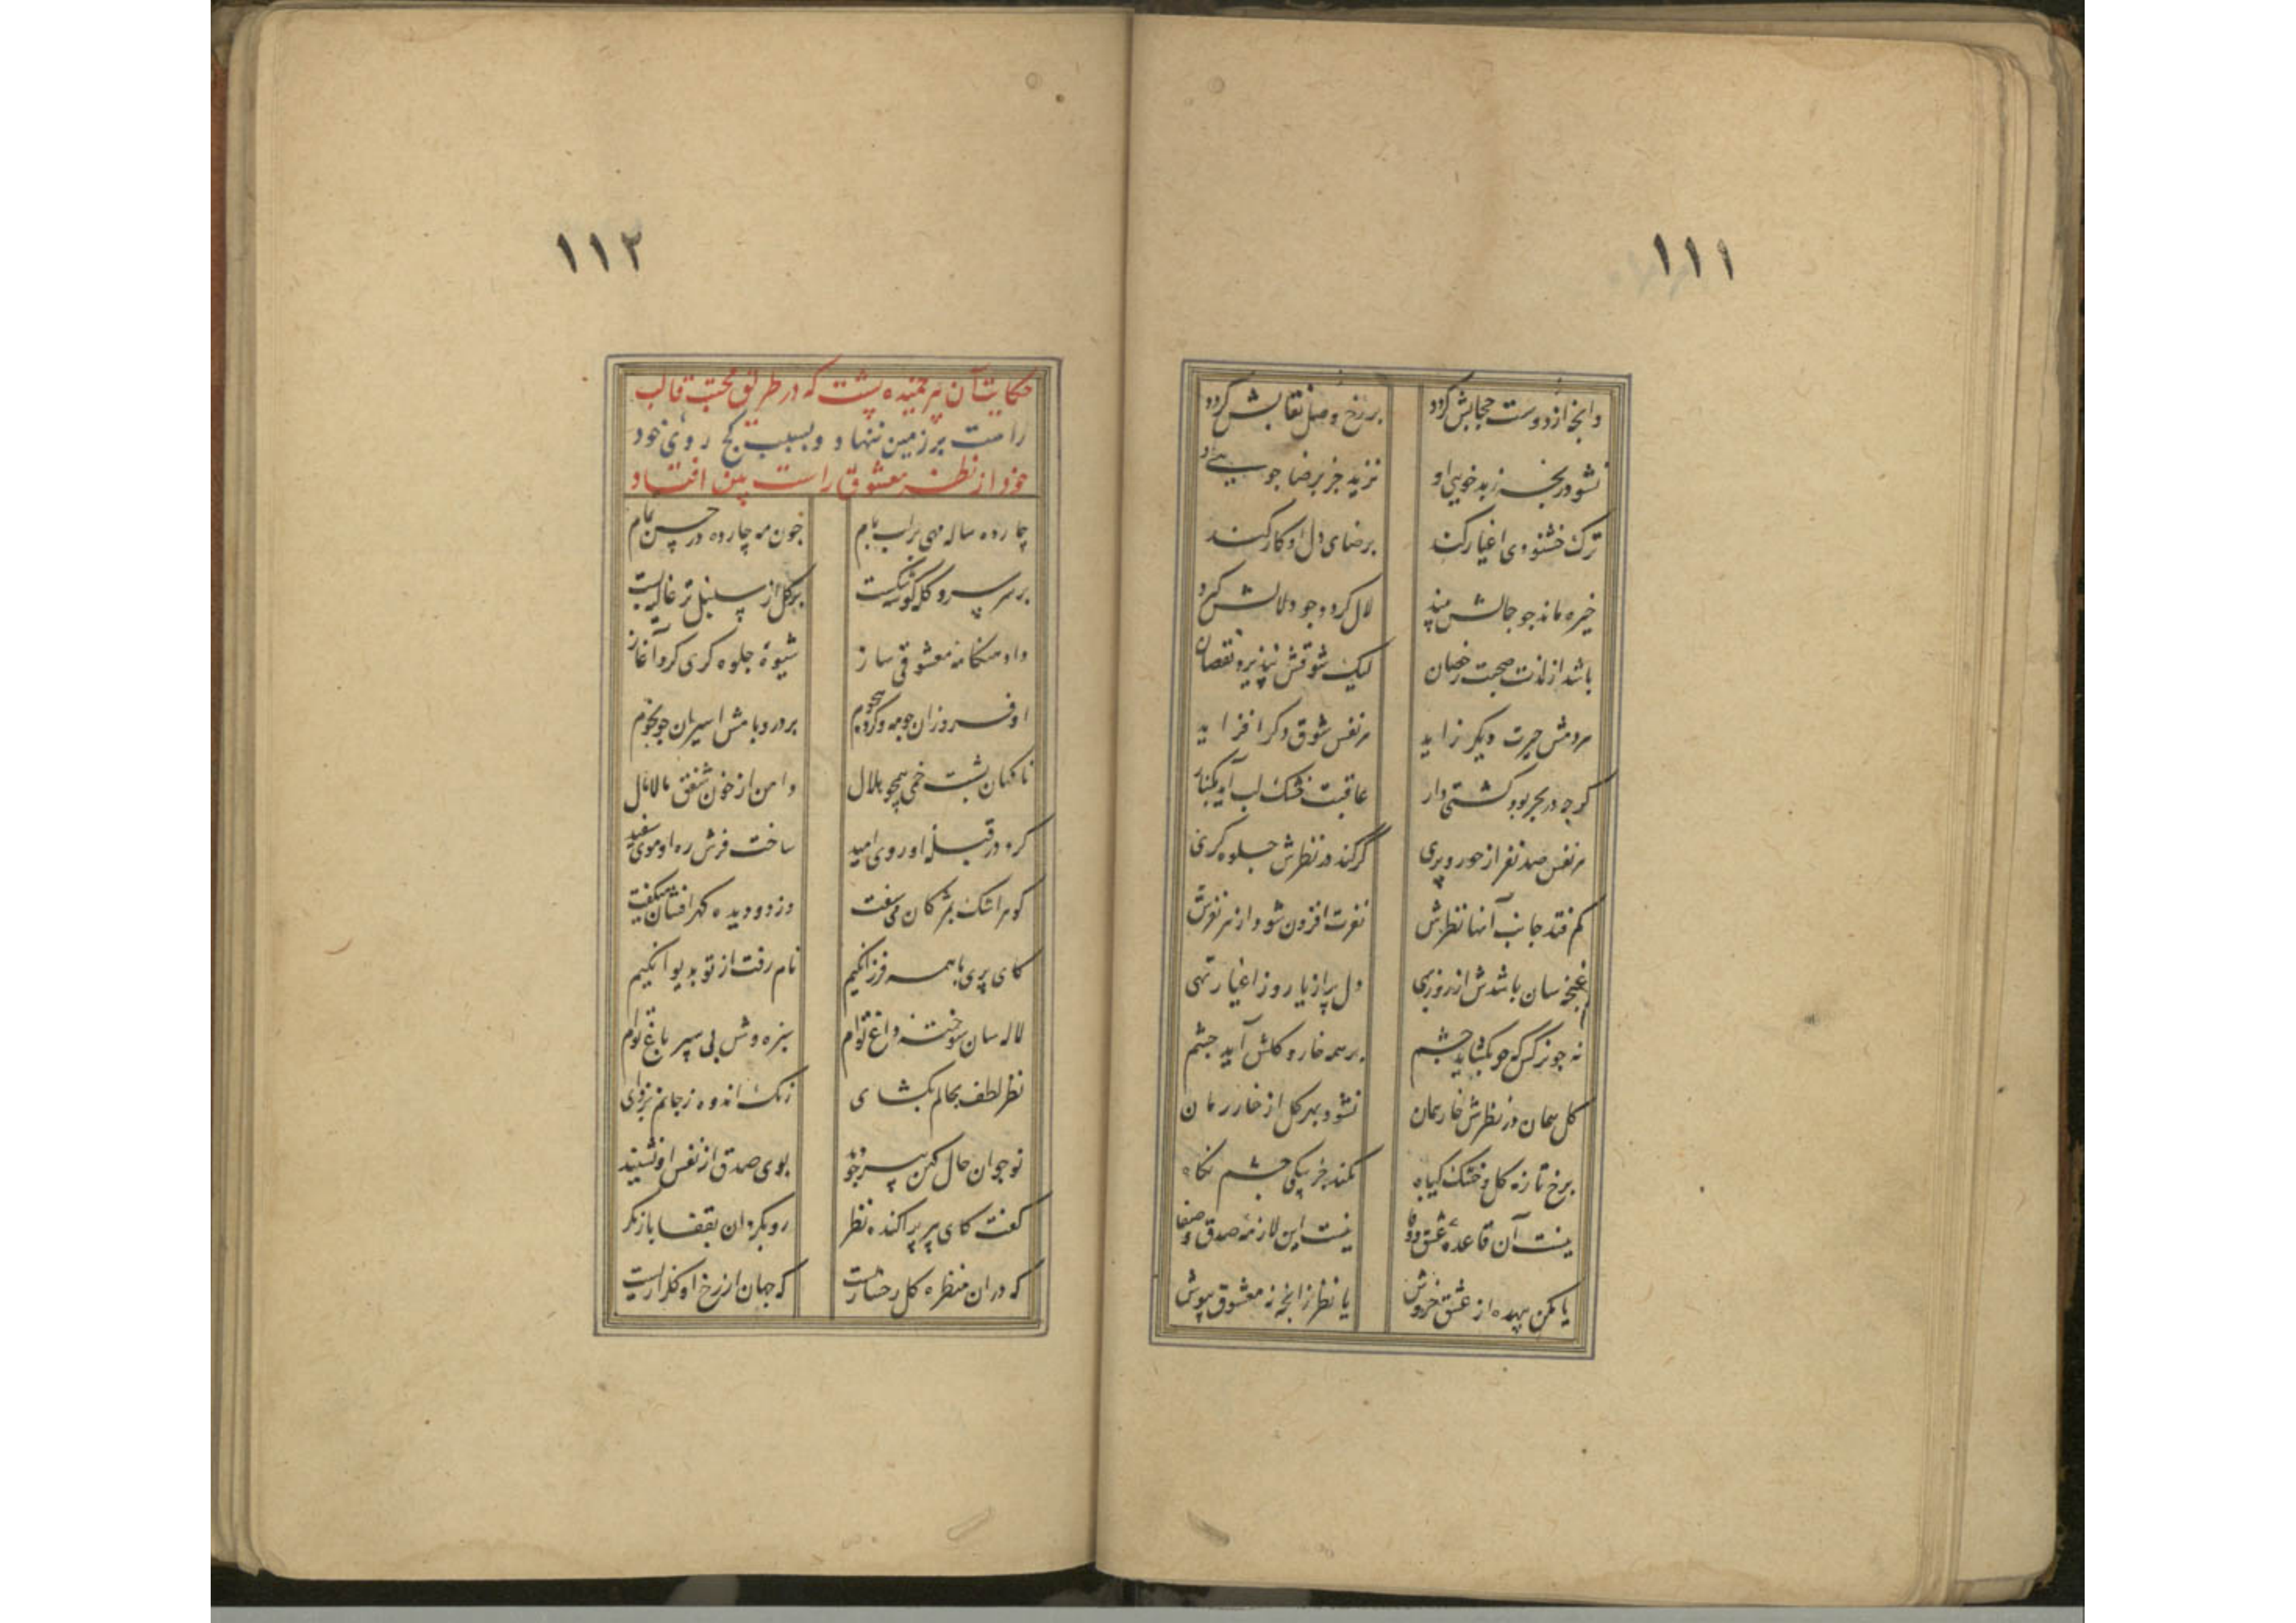 ۱۱۱
وانچ از دوست حجابش کردد بر رخ وصل نقابش کردد
نشود رنجه ز بد خویی او نزید جز برضا جویی او
ترک خشنودی اغیار کند برضای دل او کار کند
خیره ماند جو جمالش بیند لال کردد جو دلالش بیند
باشد از لذت صحبت رقصان لیک شوقش نپذیرد نقصان
هر دمش حیرت دیکر زاید هر نفس شوق دکر افزاید
کر چه در بحر بود کشتی وار عاقبت خشک لب آید بکنار
هر نفس صد نفر از حور و پری کر کند در نظرش جلوه کری
کم فتد جانب آنها نظرش نفرت افزون شود از هر نفرش
غنچه سان باشدش از روز بهی دل پر از یار و ز اغیار تهی
نه جو نرکس که جو بکشاید چشم بر همه خار و کلش آید چشم
کل همان در نظرش خار همان نشود بهر کل از خار رمان
برخ تازه کل و خشک کیاه نکند جز بیکی چشم نکاه
نیست آن قاعدهٔ عشق و وفا نیست این لازمهٔ صدق و صفا
یا مکن بیهده از عشق خروش یا نظر ز انچه نه معشوق بپوش
۱۱۲
حکایت آن پیر خمیده پشت که در طریق محبت قالب
راست بر زمین ننهاد و بسبب کج روی خود
خود از نظر معشوق راست بین افتاد
چارده ساله مهی بر لب بام چون مه چارده در حسن تمام
بر سر سرو کله کوشه شکست بر کل از سنبل تر غالیه بست
داد هنکامهٔ معشوقی ساز شیوهٔ جلوه کری کرد آغاز
او فروزان چو مه و کرده هجوم بر در و بامش اسیران چو نجوم
ناکهان پشت خمی همچو هلال دامن از خون شفق مالامال
کرد در قبلهٔ او روی امید ساخت فرش ره او موی سفید
کوهر اشک بمژکان می سفت وز دو دیده کهر افشان میکفت
کای پری با همه فرزانکیم نام رفت از تو بدیوانکیم
لاله سان سوختهٔ داغ توام سبزه وش پی سپر باغ توام
نظر لطف بحالم بکشای زنک اندوه ز جانم بزدای
نوجوان حال کهن پیر چو دید بوی صدق از نفس او نشنید
کفت کای پیر پراکنده نظر رو بکردان بقفا باز نکر
که در آن منظره کل رخساریست که جهان از رخ او کلزاریست